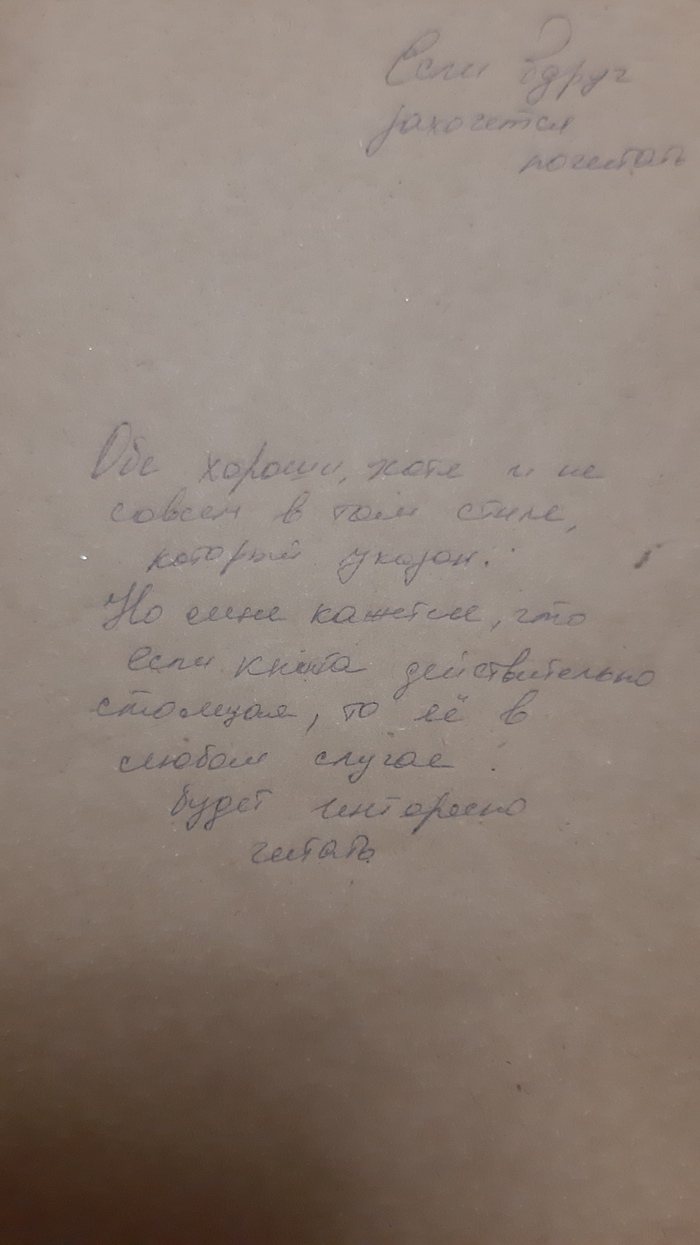 Если вдруг
захочется
почитать
Обе хороши, хотя и не
совсем в том стиле,
который указан.
Но мне кажется, что
если книга действительно
стоящая, то её в
любом случае
будет интересно
читать